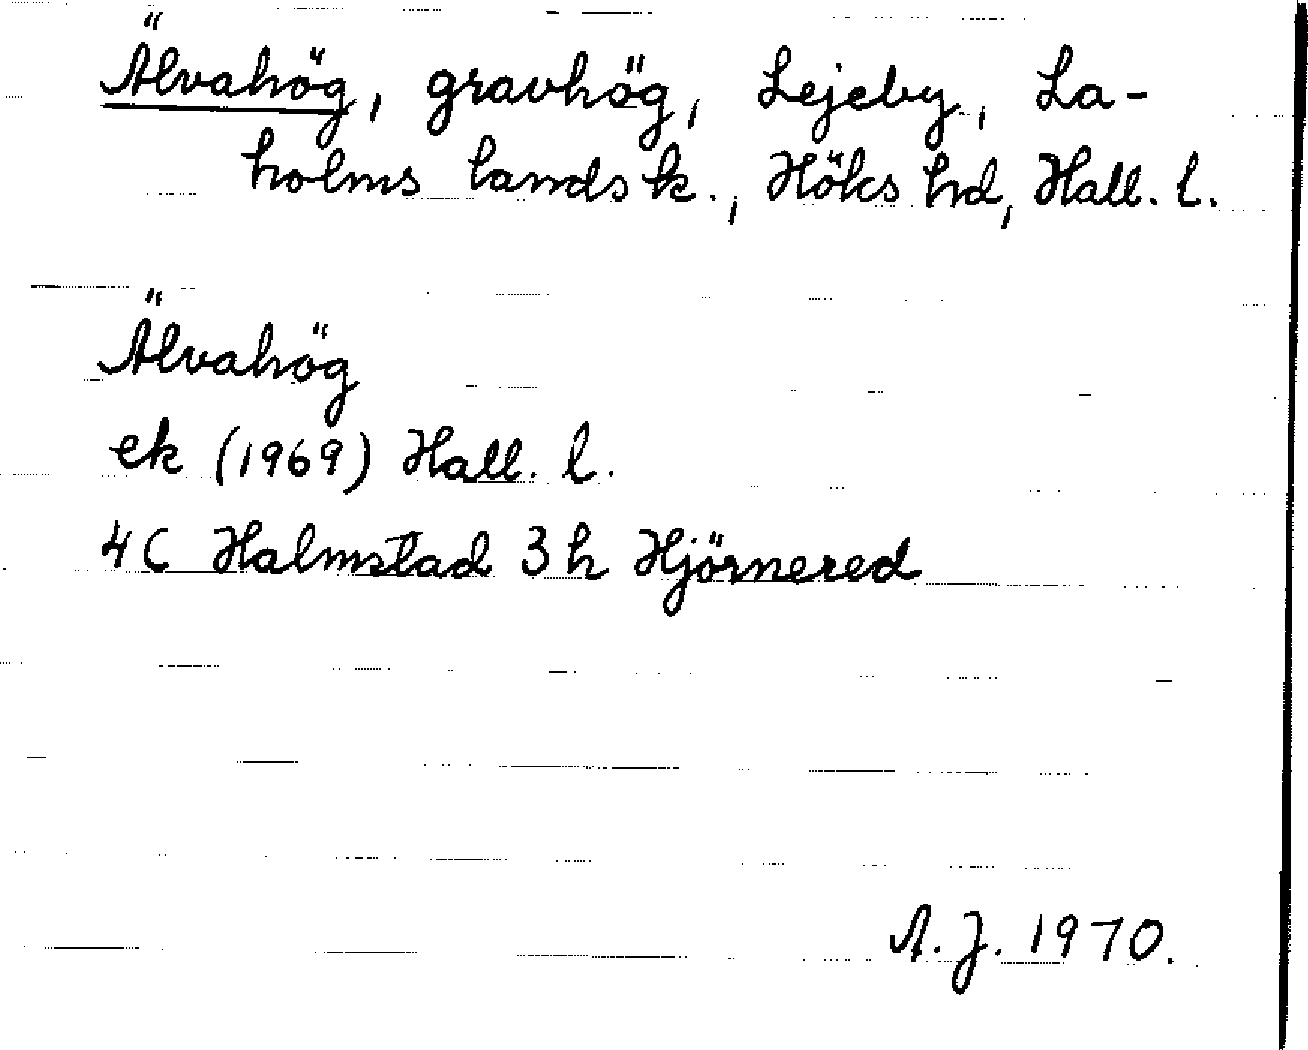 Älvahög, gravhög, Lejeby, La-
holms landsk., Höks hd, Hall. l.
Älvahög
ek (1969) Hall. l.
4C Halmstad 3h Hjörnered
A. J. 1970.